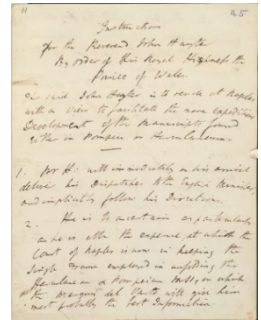 11
25
Instructions
for the Reverend John Hayter
By order of His Royal Highness the
Prince of Wales
The said John Hayter is to reside at Naples
with a view to facilitate the more expeditious
Development of the Manuscripts found
either in Pompeia or Herculaneum.
1. Mr H: will immediately on his arrival
deliver his Dispatches to the English Minister
and implicitly follow his Direction.
2. He is to ascertain as particularly
as he is able the expence at which the
Court of Naples is now in keeping the
Single Person employed in unfolding the
Herculanean or Pompeian
the Marquis del Vasto will give him
most probably the best Information